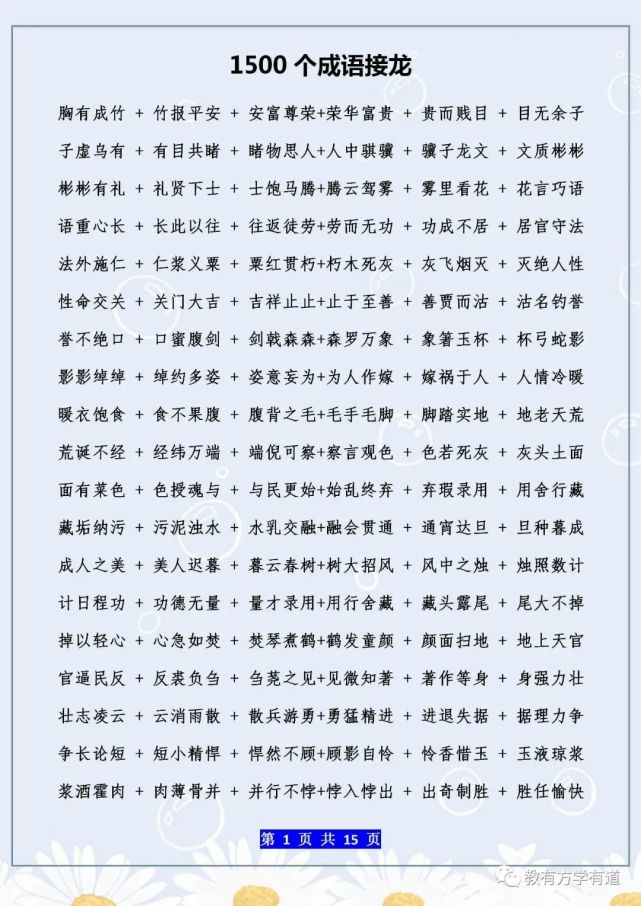 1500 个成语接龙
胸有成竹 + 竹报平安 + 安富尊荣+荣华富贵 + 贵而贱目 + 目无余子
子虚乌有 + 有目共睹 + 睹物思人+人中骐骥 + 骥子龙文 + 文质彬彬
彬彬有礼 + 礼贤下士 + 士饱马腾+腾云驾雾 + 雾里看花 + 花言巧语
语重心长 + 长此以往 + 往返徒劳+劳而无功 + 功成不居 + 居官守法
法外施仁 + 仁浆义粟 + 粟红贯朽+朽木死灰 + 灰飞烟灭 + 灭绝人性
性命交关 + 关门大吉 + 吉祥止止+止于至善 + 善贾而沽 + 沽名钓誉
誉不绝口 + 口蜜腹剑 + 剑戟森森+森罗万象 + 象箸玉杯 + 杯弓蛇影
影影绰绰 + 绰约多姿 + 姿意妄为+为人作嫁 + 嫁祸于人 + 人情冷暖
暖衣饱食 + 食不果腹 + 腹背之毛+毛手毛脚 + 脚踏实地 + 地老天荒
荒诞不经 + 经纬万端 + 端倪可察+察言观色 + 色若死灰 + 灰头土面
面有菜色 + 色授魂与 + 与民更始+始乱终弃 + 弃瑕录用 + 用舍行藏
藏垢纳污 + 污泥浊水 + 水乳交融+融会贯通 + 通宵达旦 + 旦种暮成
成人之美 + 美人迟暮 + 暮云春树+树大招风 + 风中之烛 + 烛照数计
计日程功 + 功德无量 + 量才录用+用行舍藏 + 藏头露尾 + 尾大不掉
掉以轻心 + 心急如焚 + 焚琴煮鹤+鹤发童颜 + 颜面扫地 + 地上天官
官逼民反 + 反裘负刍 + 刍荛之见+见微知著 + 著作等身 + 身强力壮
壮志凌云 + 云消雨散 + 散兵游勇+勇猛精进 + 进退失据 + 据理力争
争长论短 + 短小精悍 + 悍然不顾+顾影自怜 + 怜香惜玉 + 玉液琼浆
浆酒霍肉 + 肉薄骨并 + 并行不悖+悖入悖出 + 出奇制胜 + 胜任愉快
第 1 页 共 15 页
教有方学有道